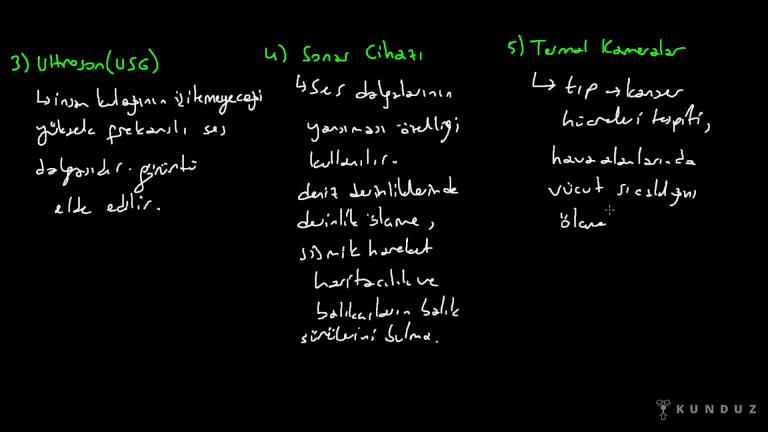 3) Ultrason(USG)
↳ insan kulağının işitemeyeceği
yüksek frekanslı ses
dalgasıdır. görüntü
elde edilir.
4) Sonar Cihazı
↳ Ses dalgalarının
yansıması özelliği
kullanılır.
deniz derinliklerinde
derinlik ölçme,
sismik hareket
haritacılık ve
balıkçıların balık
sürülerini bulma.
5) Termal Kameralar
↳ tıp → kanser
hücreleri tespiti,
hava alanlarında
vücut sıcaklığını
ölçme
KUNDUZ